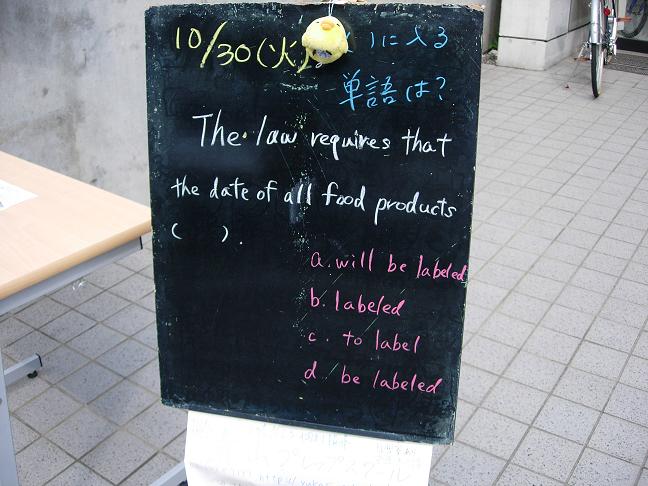 10/30(火)
)に入る
単語は?
The law requires that
the date of all food products
(   ).
a. will be labeled
b. labeled
c. to label
d. be labeled